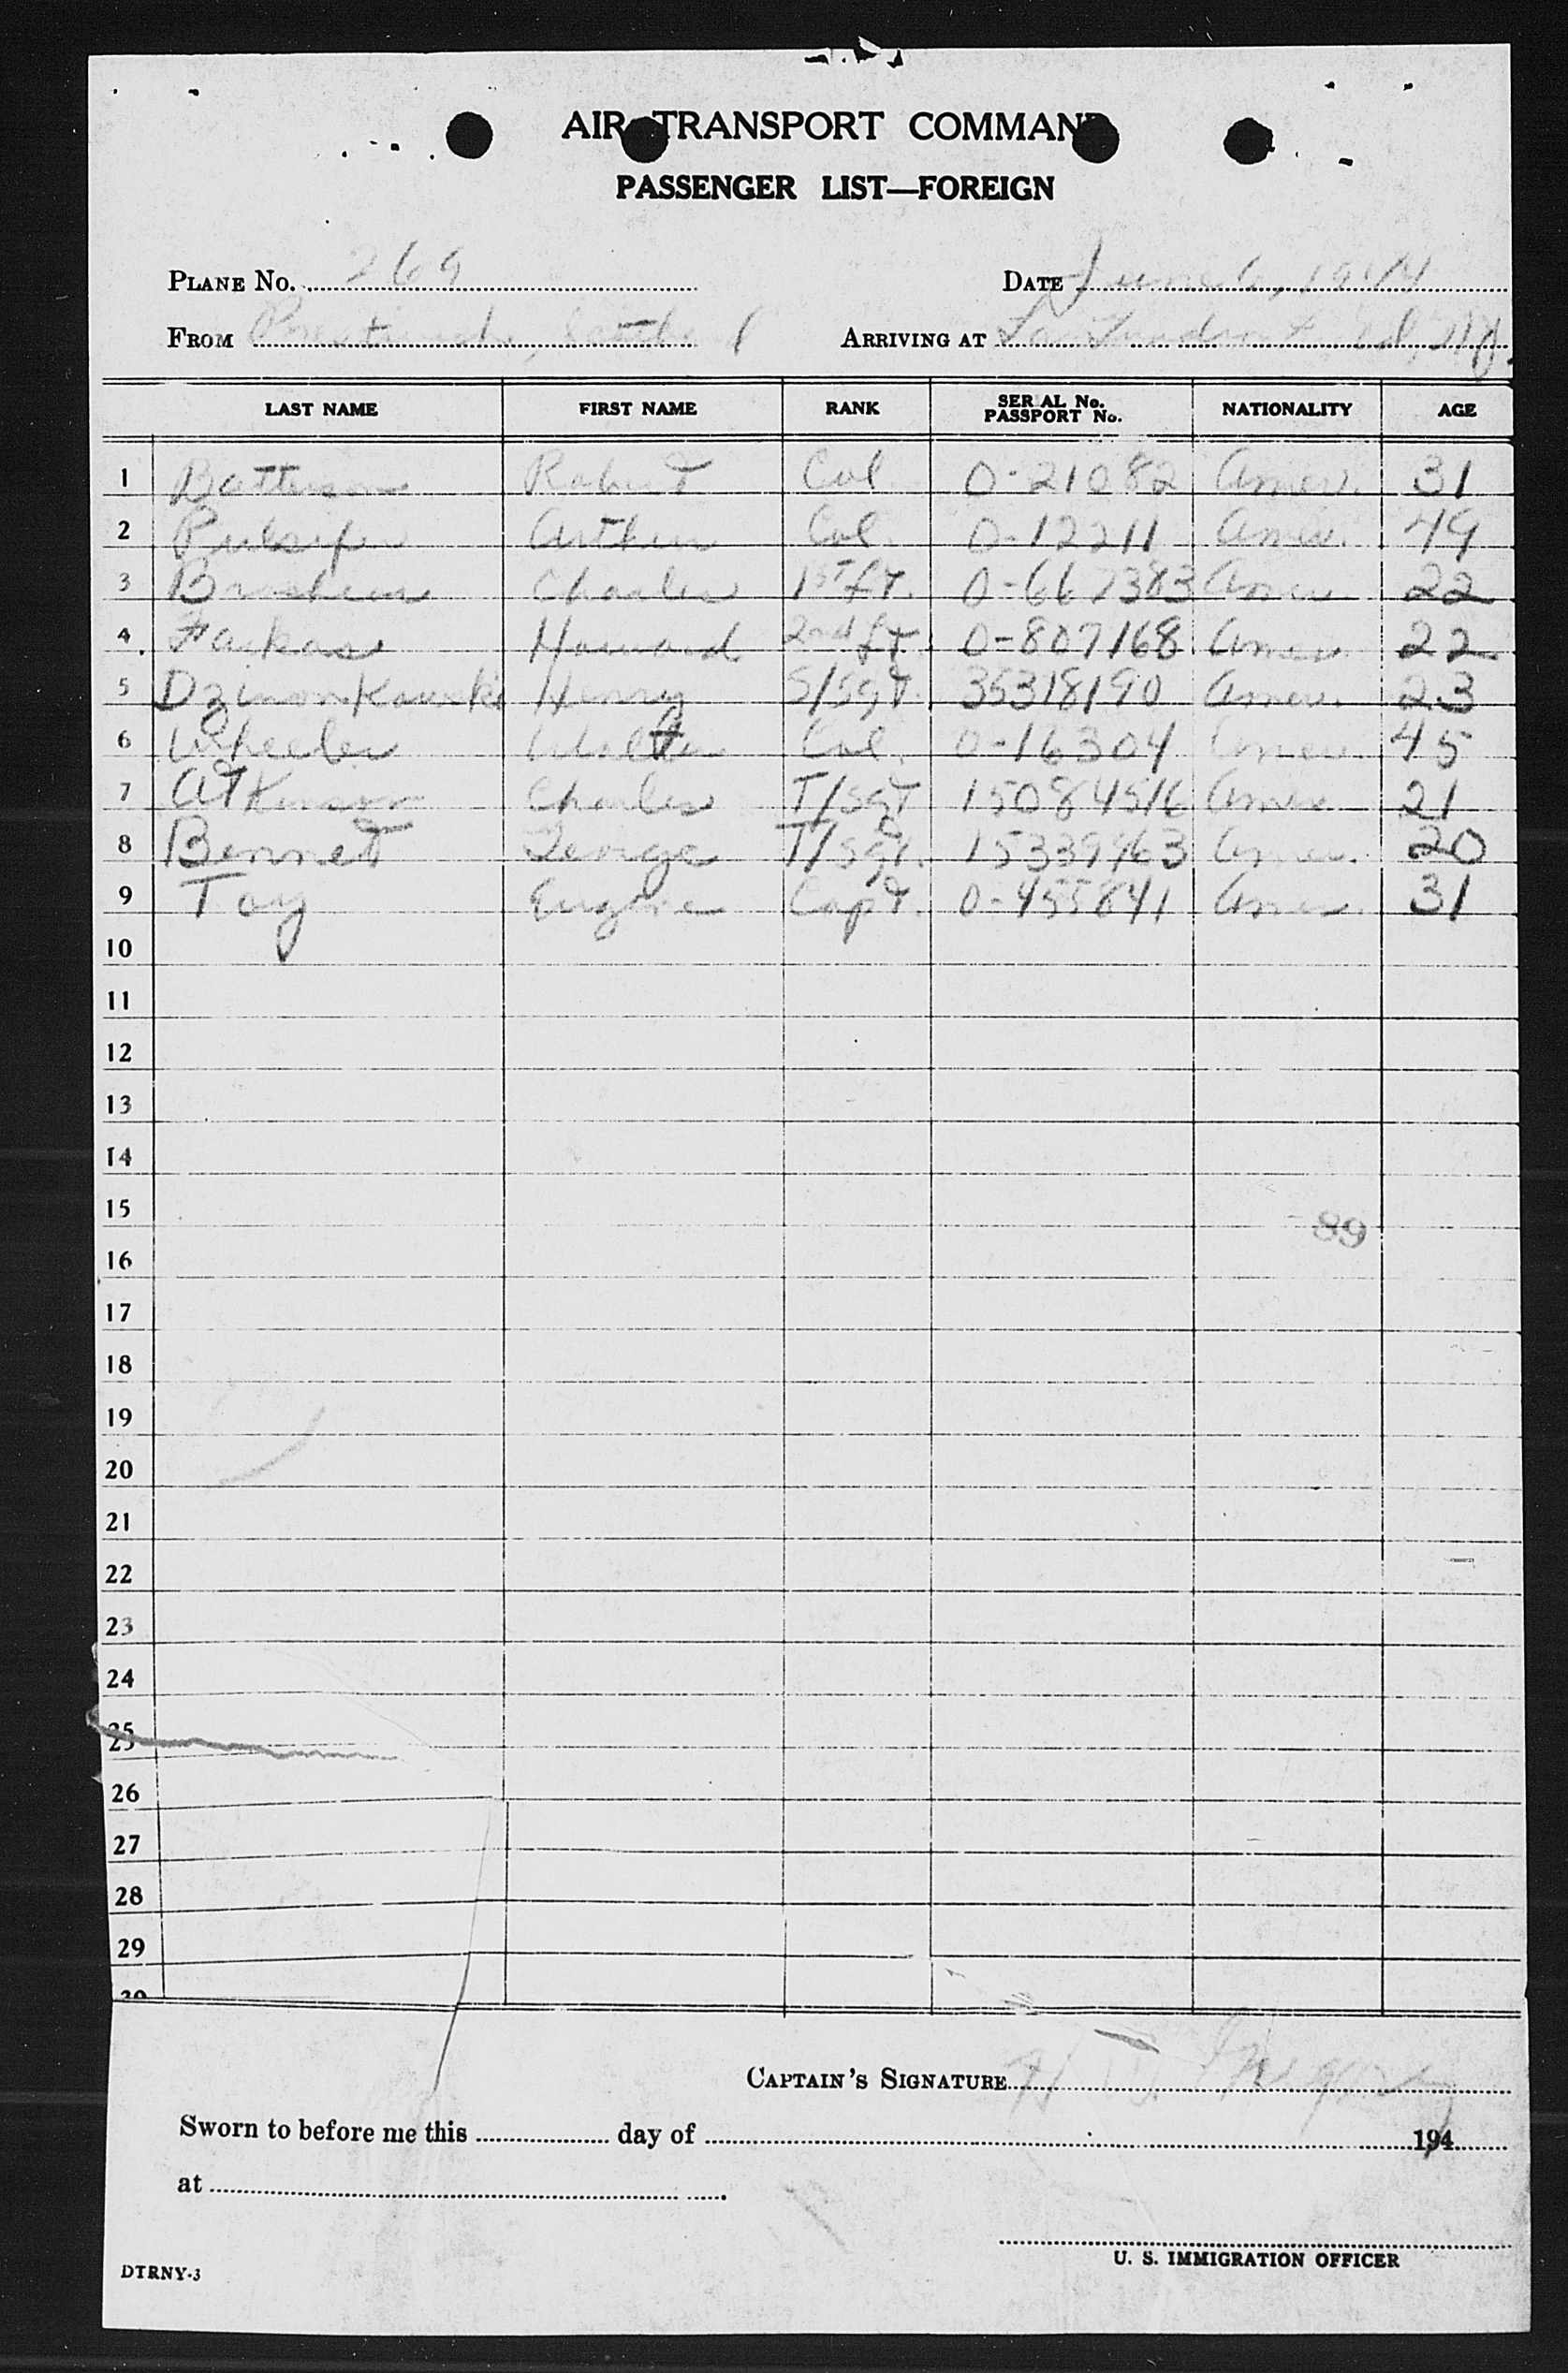 AIR TRANSPORT COMMAND
PASSENGER LIST—FOREIGN
PLANE No. 269 DATE June 6, 1944
FROM ARRIVING AT
LAST NAME FIRST NAME RANK SER AL No. PASSPORT No. NATIONALITY AGE
1 Batterson Robert Col 0-21082 Amer. 31
2 Pulsifer Arthur Col. 0-12211 Amer. 49
3 Charles 1st Lt. 0-667383 Amer. 22
4 Farkas Howard 2nd Lt. 0-807168 Amer. 22
5 Henry S/Sgt. 35318190 Amer. 23
6 Wheeler Walter Col. 0-16304 Amer. 45
7 Atkinson Charles T/Sgt 15084516 Amer. 21
8 Bennet George T/Sgt. 15339463 Amer. 20
9 Toy Eugene Capt. 0-455841 Amer. 31
10
11
12
13
14
15
89
16
17
18
19
20
21
22
23
24
25
26
27
28
29
30
CAPTAIN'S SIGNATURE
Sworn to before me this day of 194
at
U. S. IMMIGRATION OFFICER
DTRNY-3